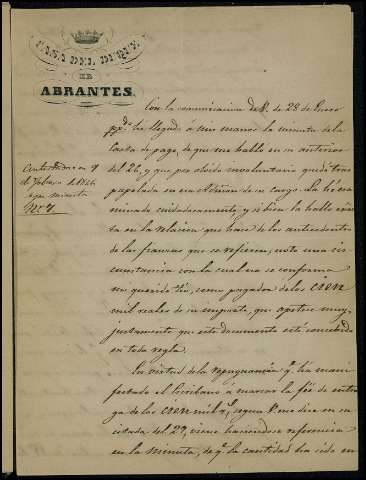 CASA DEL DUQUE
DE
ABRANTES.
Contestada en 9
de Febrero de 1846
segun minuta
Nº 7.
Con la comunicacion de V. de 28 de Enero
ppdo. ha llegado á mis manos la minuta de la
Carta de pago, de que me habló en su anterior
del 26, y que por olvido involuntario quedó tras
papelada en esa Admon. de su cargo. La hé exa
minado cuidadosamente, y si bien la hallo exac
ta en la relacion que hace de los antecedentes
de las fianzas que se refieren, noto una cir
cunstancia con la cual no se conforma
mi querido tio, como pagador de los cien
mil reales de su importe, que apetece muy
justamente que este documento esté concebido
en toda regla.
En virtud de la repugnancia q.e há mani
festado el Escribano á marcar la fée de entre
ga de los cien mil r.s, segun V. me dice en su
citada del 29, viene haciendose referencia
en la minuta, de q.e la cantidad ha sido en